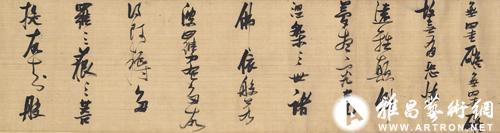 無罣礙無罣礙
故無有恐怖
遠離顛倒
夢想究竟
涅槃三世諸
佛依般若
波羅蜜多故
得阿耨多
羅三藐三菩
提故知般
雅昌藝術網
WWW.ARTRON.NET